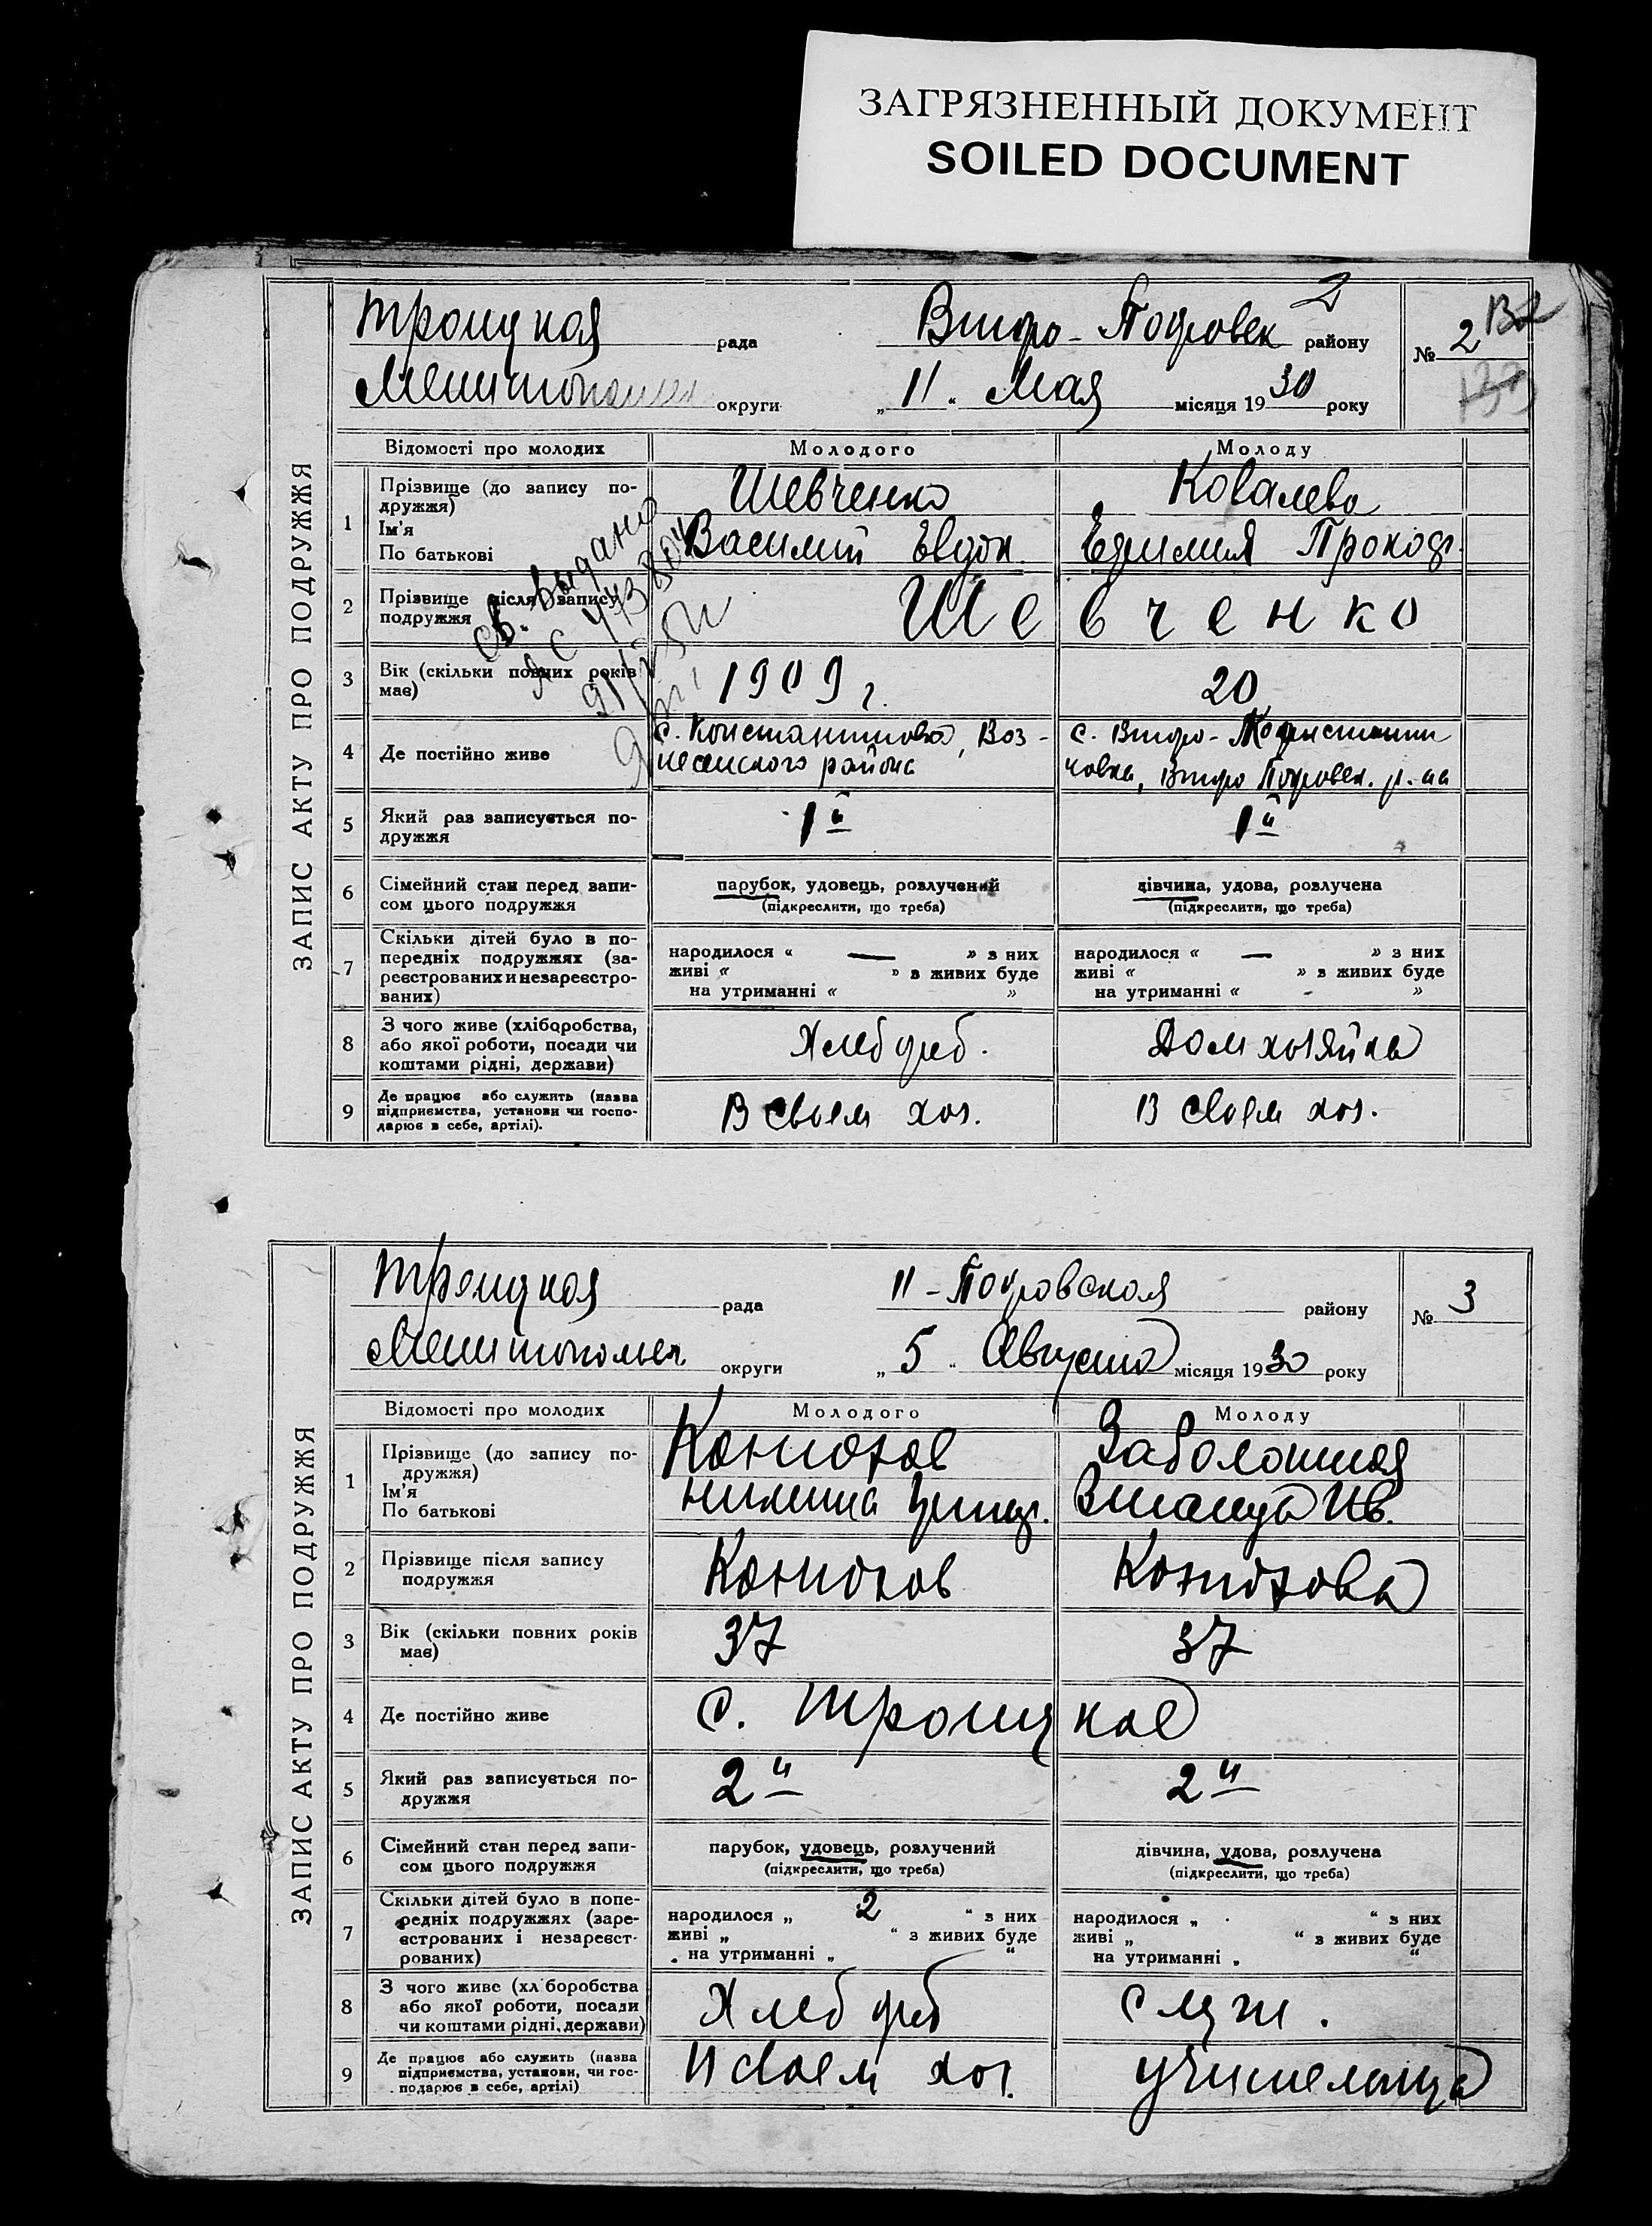 ЗАГРЯЗНЕННЫЙ ДОКУМЕНТ
SOILED DOCUMENT
2
Троицкая рада Второ-Покровск району № 2
Мелитопольск округи „11“ Мая місяця 1930 року
ЗАПИС АКТУ ПРО ПОДРУЖЖЯ
Відомості про молодих Молодого Молоду
1 Прізвище (до запису по-
дружжя)
Ім'я
По батькові
Шевченко Ковалева
Василий Евдок. Прокоф.
Св. выдано
2 Прізвище після запису
подружжя
Шевченко
3 Вік (скільки повних років
має)
1909 г. 20
4 Де постійно живе
с. Константиновка, Воз-
несенского района
с. Второ-
новка, Второ Покровск. р-на
5 Який раз записується по-
дружжя
1й 1й
6 Сімейний стан перед запи-
сом цього подружжя
парубок, удовець, розлучений дівчина, удова, розлучена
(підкреслити, що треба) (підкреслити, що треба)
7 Скільки дітей було в по-
передніх подружжях (за-
реєстрованих и незареєстро-
ваних)
народилося « — » з них народилося « — » з них
живі « » в живих буде живі « » з живих буде
на утриманні « » на утриманні « - »
8 З чого живе (хліборобства,
або якої роботи, посади чи
коштами рідні, держави)
Хлебороб. Домхозяйка
9 Де працює або служить (назва
підприємства, установи чи госпо-
дарює в себе, артілі).
В своем хоз. В своем хоз.
Троицкая рада II-Покровская району № 3
Мелитопольск. округи „5“ Августа місяця 1930 року
ЗАПИС АКТУ ПРО ПОДРУЖЖЯ
Відомості про молодих Молодого Молоду
1 Прізвище (до запису по-
дружжя)
Ім'я
По батькові
Конюхов Заболотная
Никита Григ. Ив.
2 Прізвище після запису
подружжя
Конюхов Конюхова
3 Вік (скільки повних років
має)
37 37
4 Де постійно живе
с. Троицкое
5 Який раз записується по-
дружжя
2й 2й
6 Сімейний стан перед запи-
сом цього подружжя
парубок, удовець, розлучений дівчина, удова, розлучена
(підкреслити, що треба) (підкреслити, що треба)
7 Скільки дітей було в попе-
редніх подружжях (заре-
єстрованих і незареєст-
рованих)
народилося „ 2 “ з них народилося „ “ з них
живі „ “ з живих буде живі „ “ з живих буде
на утриманні „ “ на утриманні „ “
8 З чого живе (хліборобства
або якої роботи, посади
чи коштами рідні, держави)
Хлебороб служ.
9 Де працює або служить (назва
підприємства, установи, чи гос-
подарює в себе, артілі)
в своем хоз. учительница